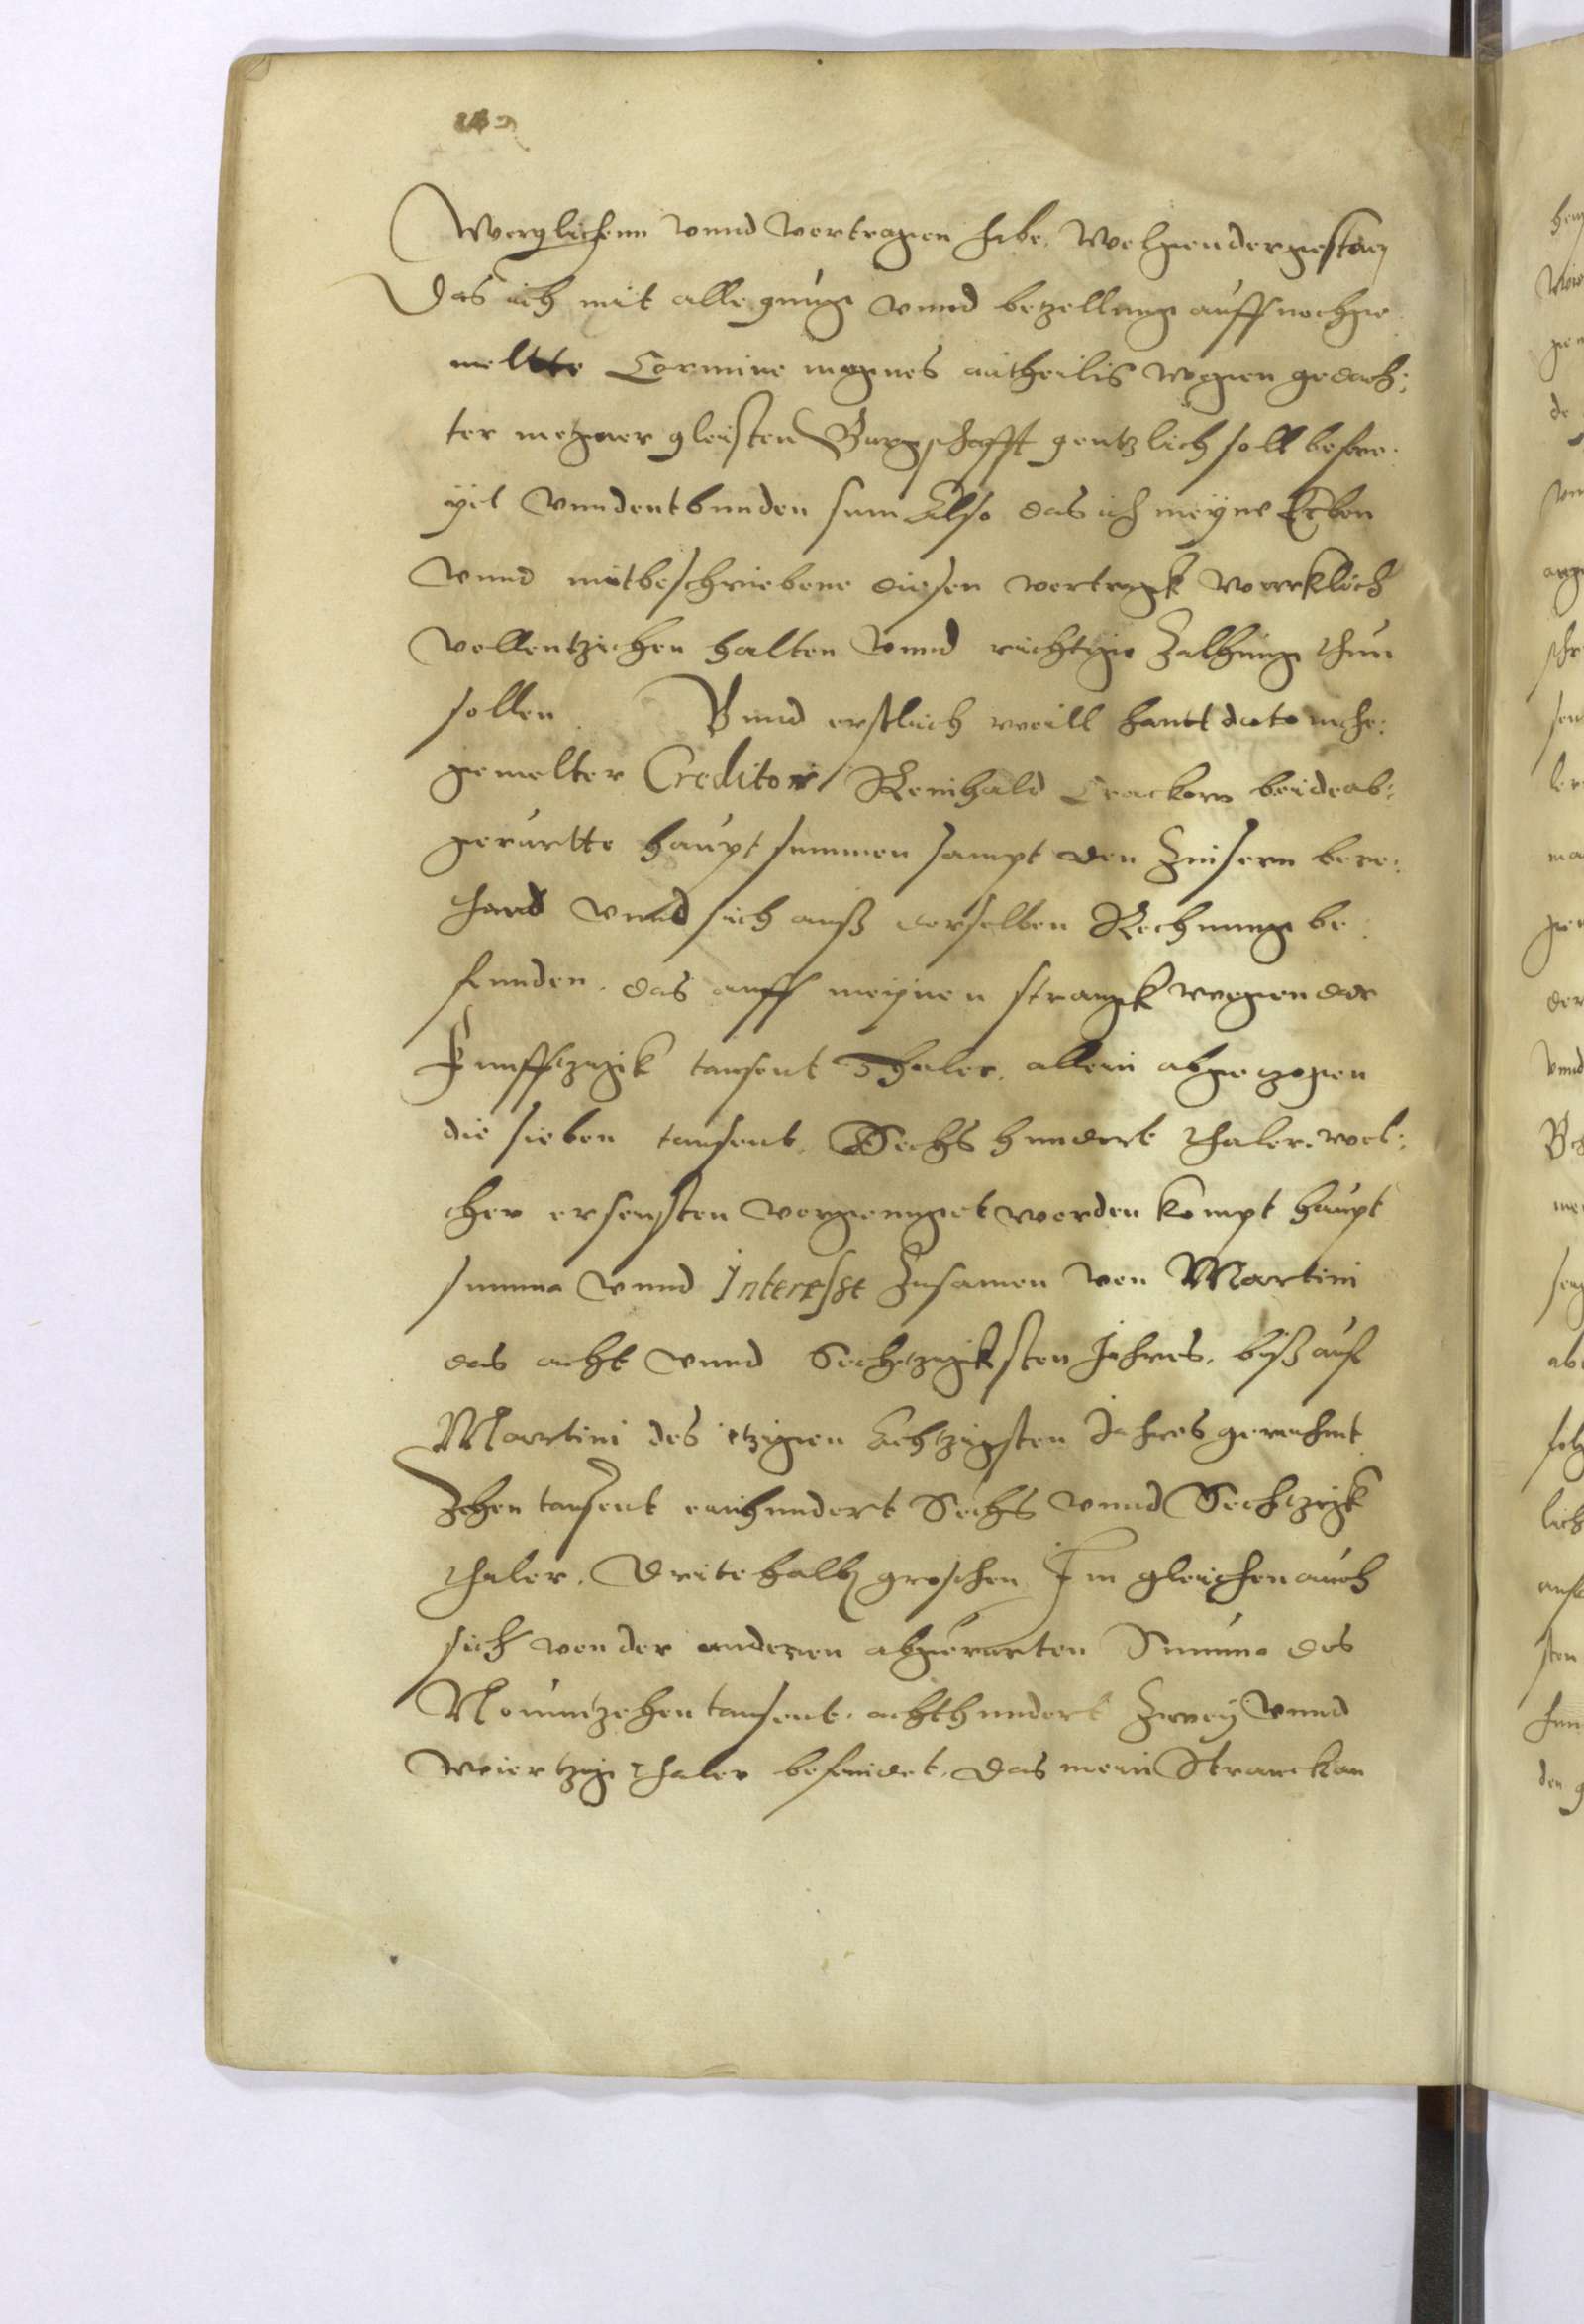 Verglichenn vnnd vertragen habe, Welgendergestalt
Das ich mit alle gnuge vnnd bezellung auff nochge
meltte Termine meynes antheilis wegen gedach:
ter meyner gleisten Burgschafft gentzlich soll befre:
yet vnndentbunden sein Also das ich meyne Erben
vnnd mitbeschriebene diesen vertragk wircklich
vollentziehen halten vnnd richtige Zalhung thun
sollen Vnnd erstlich weill hautt dato mehr:
gemelter Creditor Reinhald Crackow beideab:
gerurtte haupt summen sampt den Zinsern bere:
chand vnnd sich auß derselben Rechnung be
funden, das auff meynen strangk wegen der
Funfftzigk tausent Thaler, allein abgezogen
die sieben tausent, Sechs hundert thaler, wel:
cher ersensten vergenuget werden kompt haupt
summa vnnd Interesse Zusamen von Martini
das acht vnnd Sechtzigksten Jahres, biß auf
Martini des itzigen Achtzigsten Jahres gerechnt
Zehen tausent einhundert Sechs vnnd Sechtzigk
thaler, Dritehalb groschen Im gleichen auch
sich von der anderen abgerurten Summa des
Neuntzehen tausent, achthundert Zwey vnnd
viertzig thaler befindet, das mein Stranck an